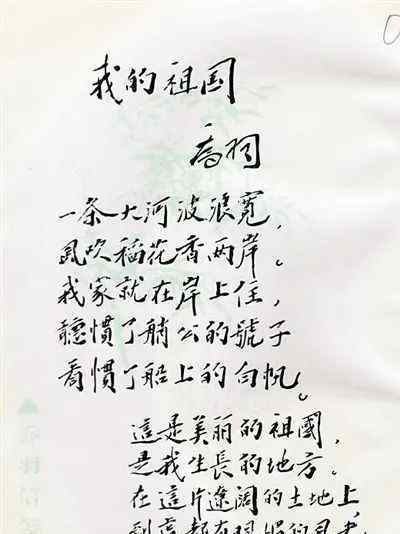 我的祖国
乔羽
一条大河波浪宽,
风吹稻花香两岸。
我家就在岸上住,
聽慣了艄公的號子
看慣了船上的白帆。
這是美丽的祖國,
是我生長的地方。
在這片遼阔的土地上,
到處都有明媚的風光